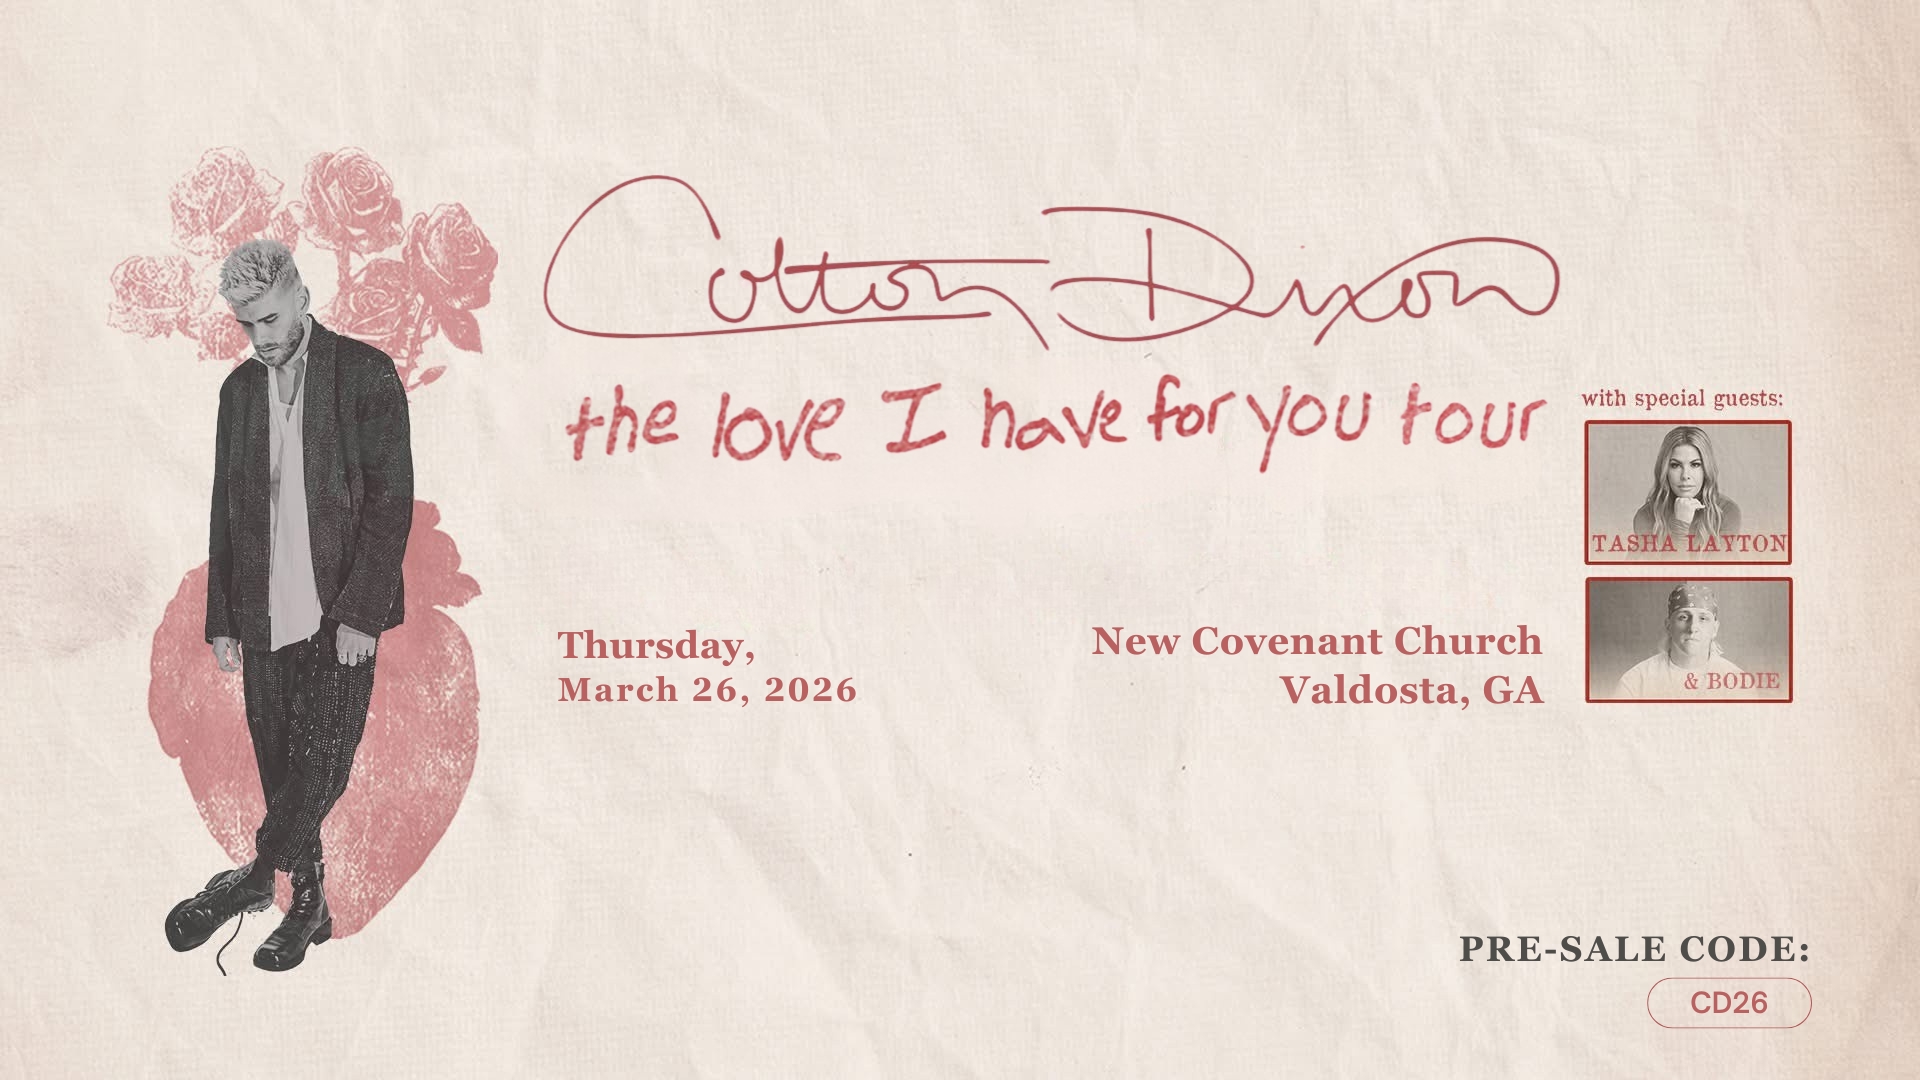 Colton Dixon
the love I have for you tour
with special guests:
TASHA LAYTON
& BODIE
Thursday,
March 26, 2026
New Covenant Church
Valdosta, GA
PRE-SALE CODE:
CD26